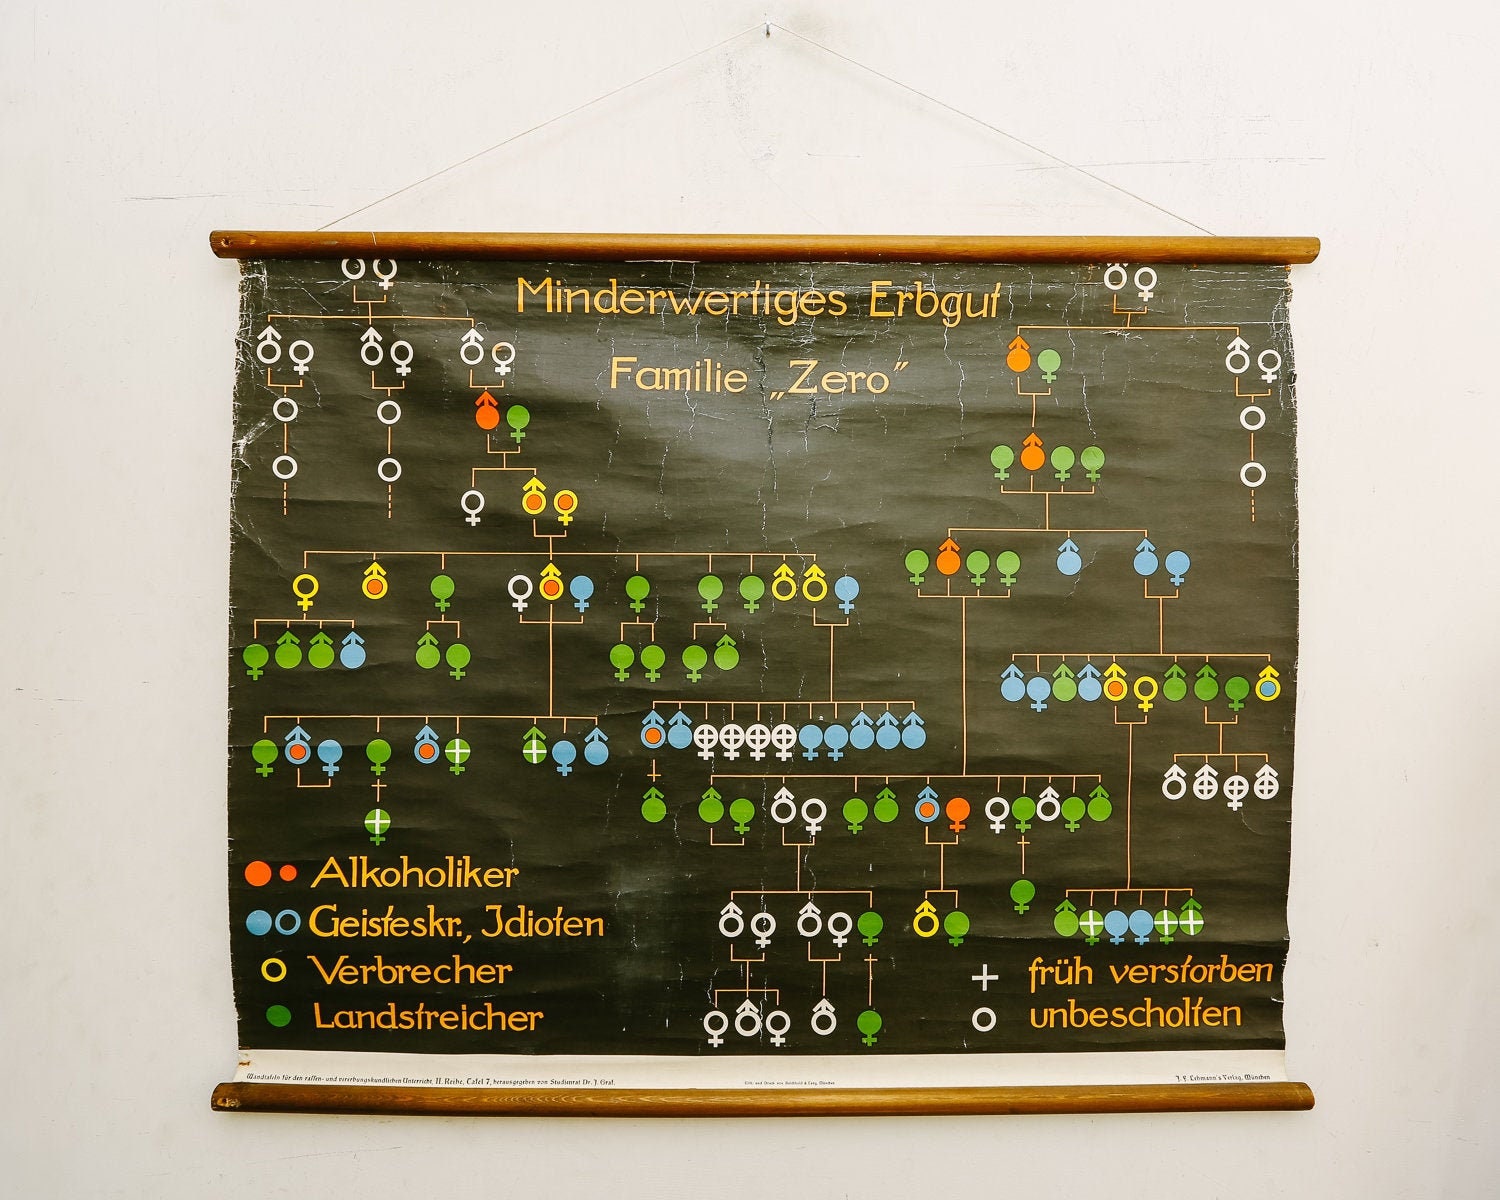 Minderwertiges Erbgut
Familie „Zero”
Alkoholiker
Geisteskr., Idioten
Verbrecher
Landstreicher
früh verstorben
unbescholten
Wandtafeln für den rassen- und vererbungskundlichen Unterricht, II. Reihe, Tafel 7, herausgegeben von Studienrat Dr. J. Graf.
J. F. Lehmann's Verlag, München